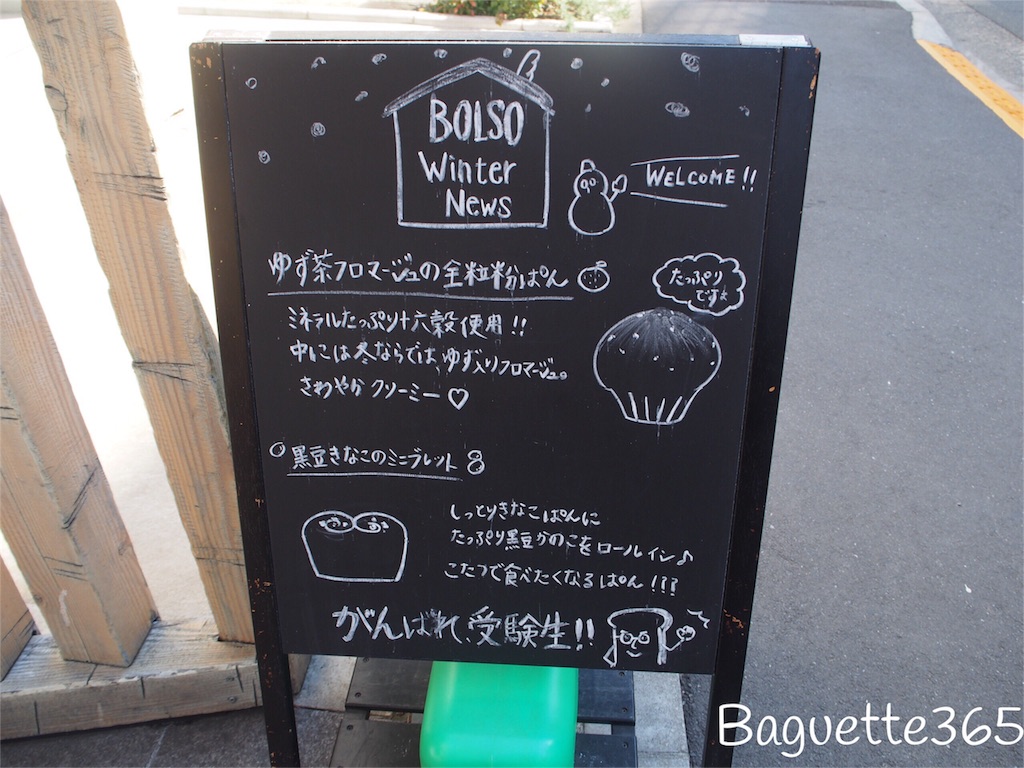 BOLSO
Winter
News
WELCOME!!
ゆず茶フロマージュの全粒粉ぱん
たっぷり
です☆
ミネラルたっぷり十六穀使用!!
中には冬ならでは、ゆず入りフロマージュ。
さわやかクリーミー♡
黒豆きなこのミニブレット
しっとりきなこぱんに
たっぷり黒豆かのこをロールイン♪
こたつで食べたくなるぱん!!!
がんばれ、受験生!!
Baguette365